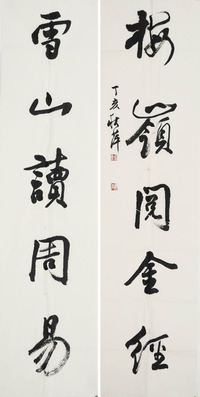 梅嶺閱金經
丁亥
雪山讀周易